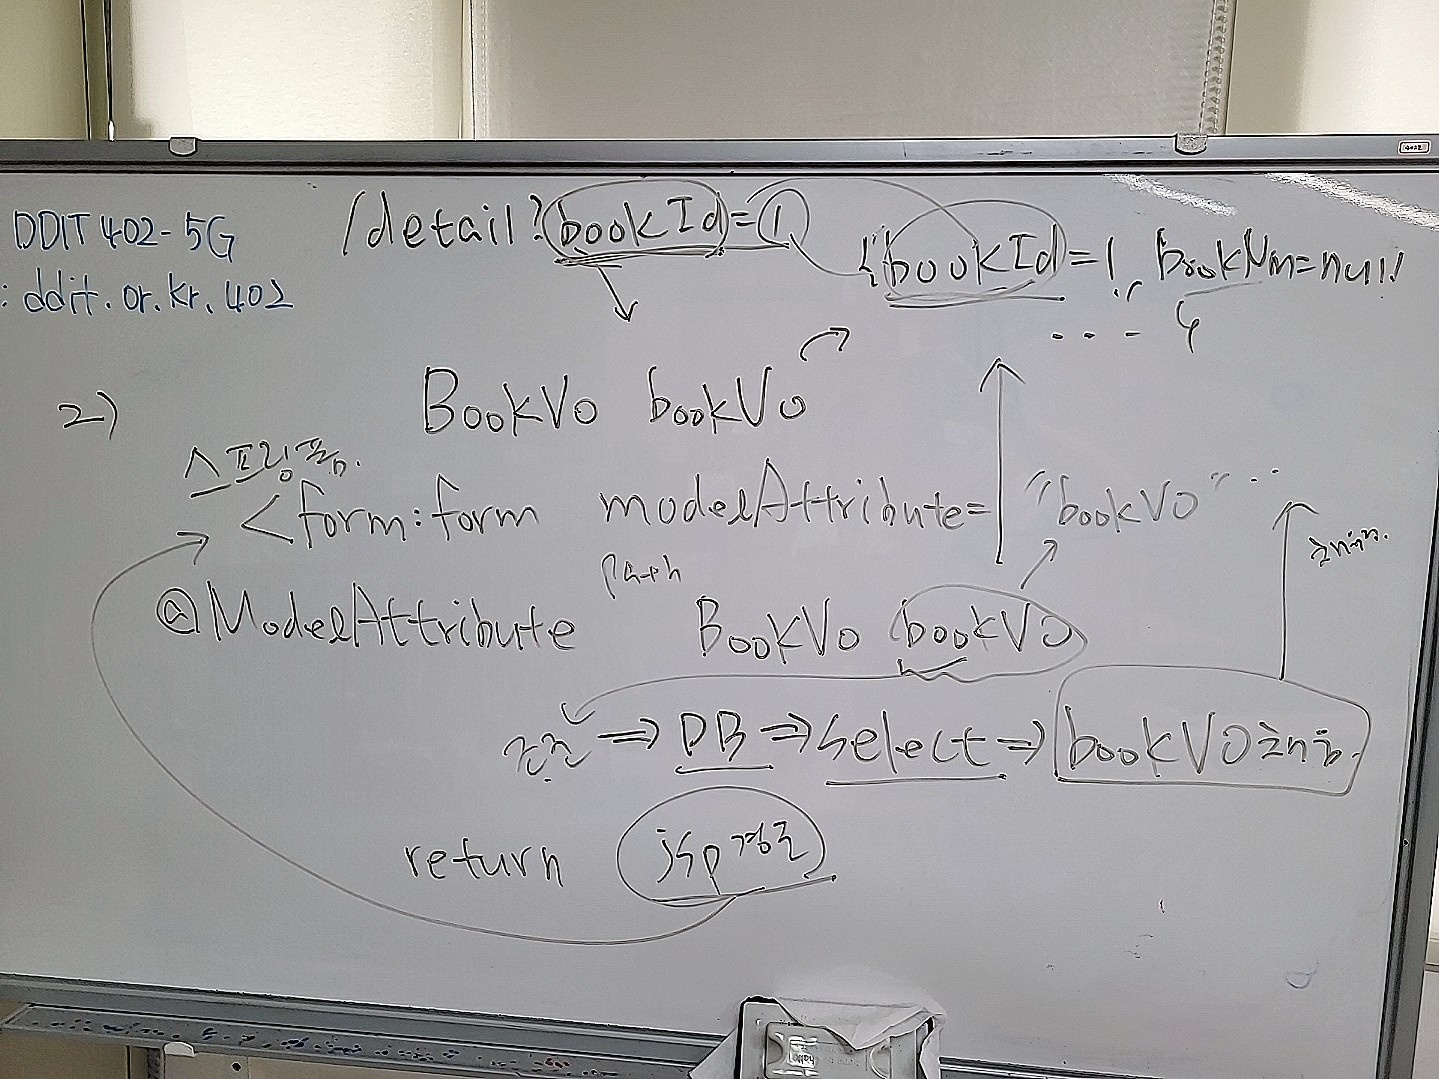 DDIT 402-5G
: ddit.or.kr.402
/detail?bookId=1
{bookId=1, bookNm=null
....}
2)
BookVO bookVO
스프링폼.
<form:form modelAttribute="bookVO"..
path
@ModelAttribute BookVO bookVO
⇒ DB ⇒ select ⇒ bookVO
return jsp경로